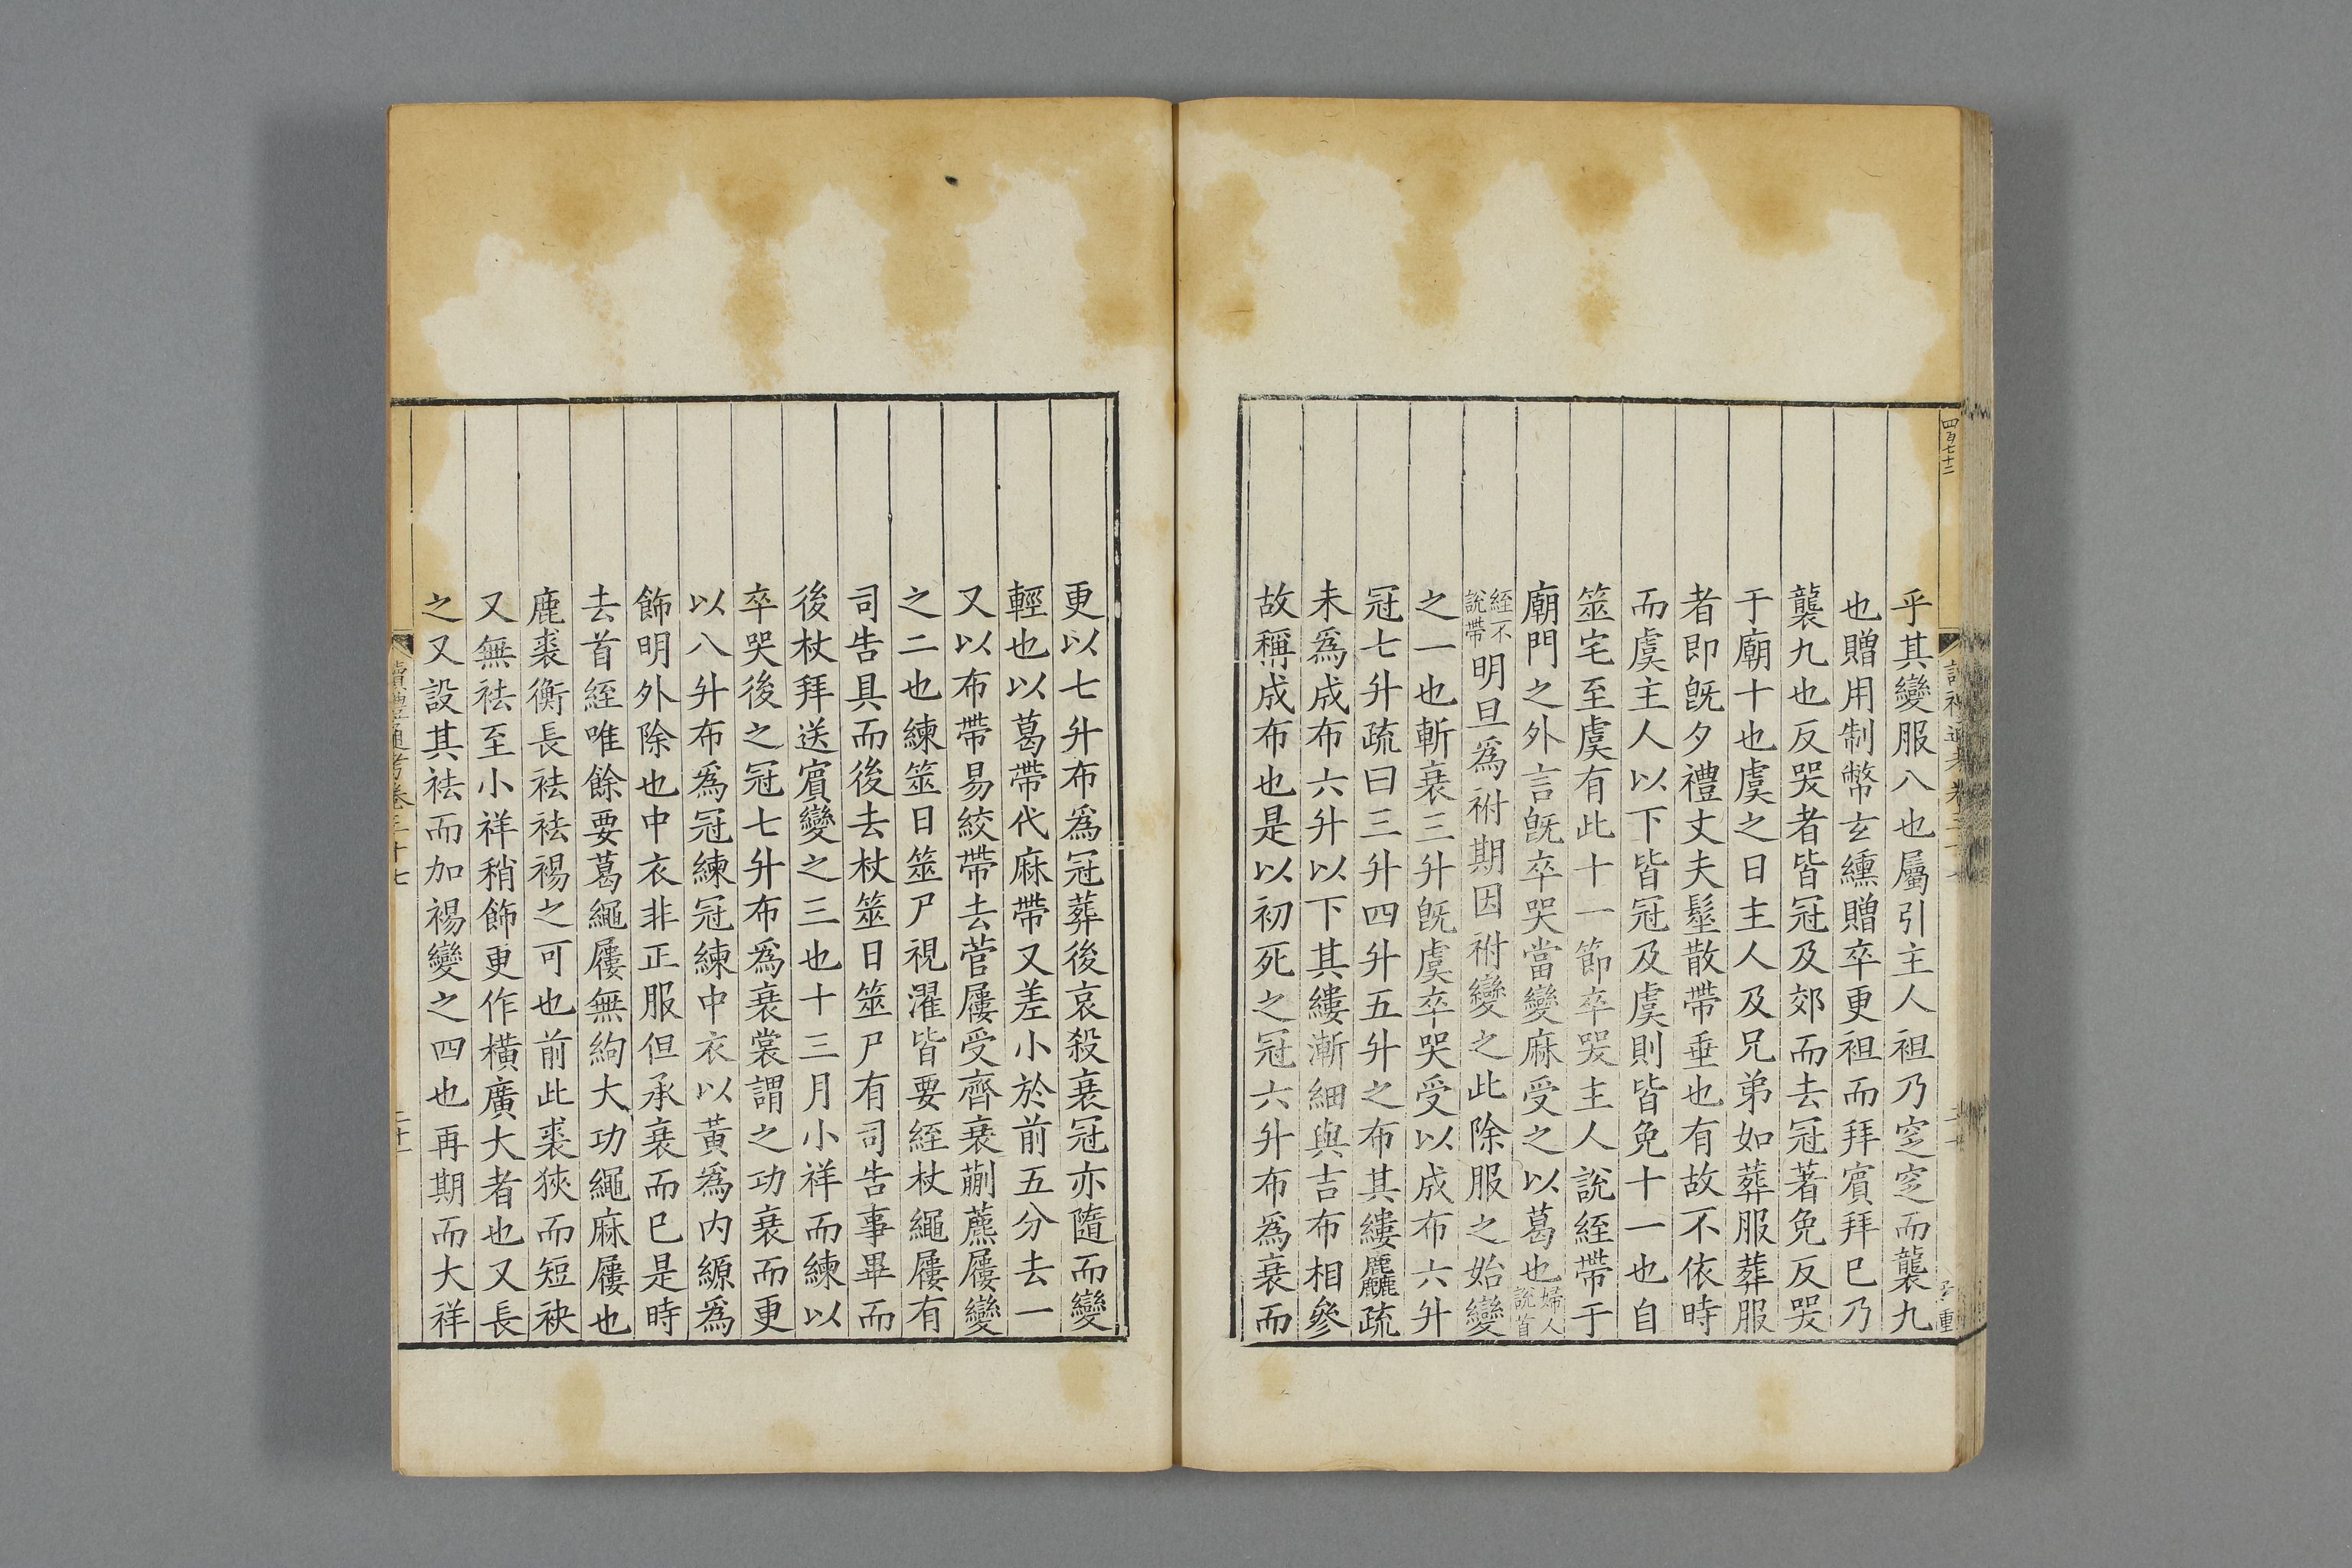 四百七十二
乎其變服八也屬引主人袒乃窆窆而襲九
也贈用制幣玄纁贈卒更袒而拜賓拜已乃
襲九也反哭者皆冠及郊而去冠著免反哭
于廟十也虞之日主人及兄弟如葬服葬服
者即旣夕禮丈夫髽散帶垂也有故不依時
而虞主人以下皆冠及虞則皆免十一也自
筮宅至虞有此十一節卒哭主人說絰帶于
廟門之外言旣卒哭當變麻受之以葛也婦人說首
絰不說帶明旦爲祔期因祔變之此除服之始變
之一也斬衰三升旣虞卒哭受以成布六升
冠七升疏曰三升四升五升之布其縷麤疏
未爲成布六升以下其縷漸細與吉布相參
故稱成布也是以初死之冠六升布爲衰而
更以七升布爲冠葬後哀殺衰冠亦隨而變
輕也以葛帶代麻帶又差小於前五分去一
又以布帶易絞帶去菅屨受齊衰蒯藨屨變
之二也練筮日筮尸視濯皆要絰杖繩屨有
司告具而後去杖筮日筮尸有司告事畢而
後杖拜送賓變之三也十三月小祥而練以
卒哭後之冠七升布爲衰裳謂之功衰而更
以八升布爲冠練冠練中衣以黃爲內縓爲
飾明外除也中衣非正服但承衰而已是時
去首絰唯餘要葛繩屨無絇大功繩麻屨也
鹿裘衡長袪袪裼之可也前此裘狹而短袂
又無袪至小祥稍飾更作橫廣大者也又長
之又設其袪而加裼變之四也再期而大祥
讀禮通考卷三十七